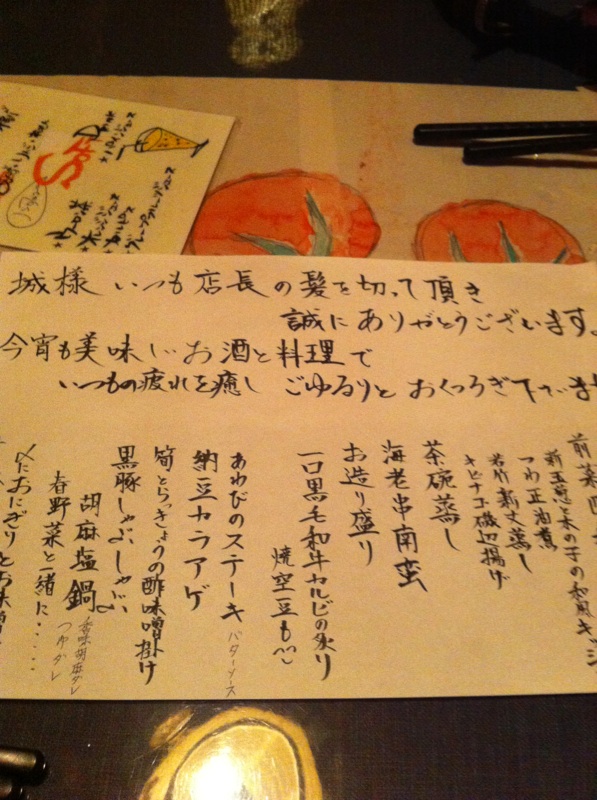 城様 いつも店長の髪を切って頂き
誠にありがとうございます。
今宵も美味しいお酒と料理で
いつもの疲れを癒し ごゆるりと おくつろぎ下さいませ
前菜四
新玉葱と木の子の和風キッシ
つわ正油煮
若竹新丈蒸し
キビナゴ磯辺揚げ
茶碗蒸し
海老串南蛮
お造り盛り
一口黒毛和牛カルビの炙り
焼空豆も
あわびのステーキ バターソース
納豆カラアゲ
筍とらっきょうの酢味噌掛け
黒豚しゃぶしゃぶ
胡麻塩鍋
胡麻ダレ
つゆダレ
春野菜と一緒に……
〆におにぎりとお味噌